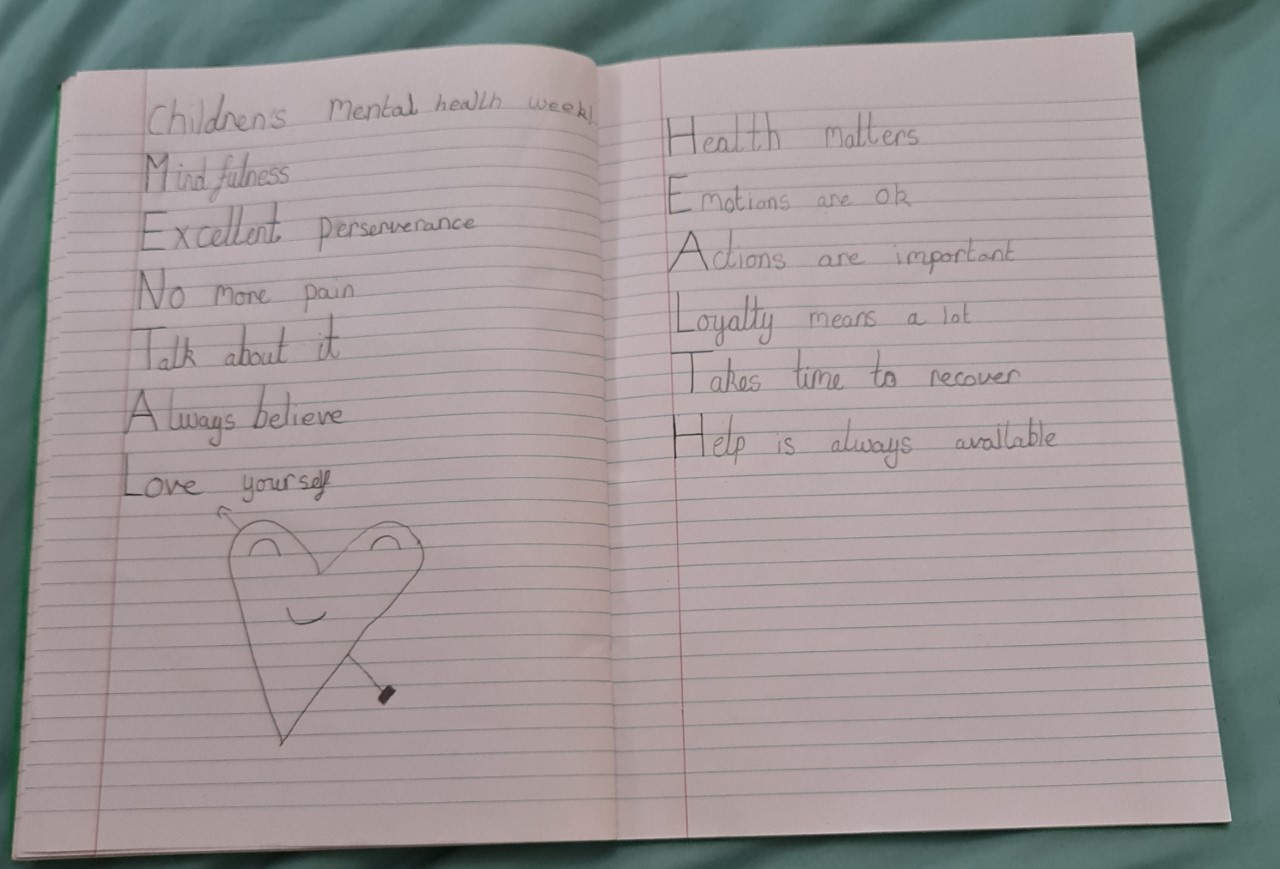 Children's Mental health week
Mindfulness
Excellent perserverance
No more pain
Talk about it
Always believe
Love yourself
Health matters
Emotions are ok
Actions are important
Loyalty means a lot
Takes time to recover
Help is always available